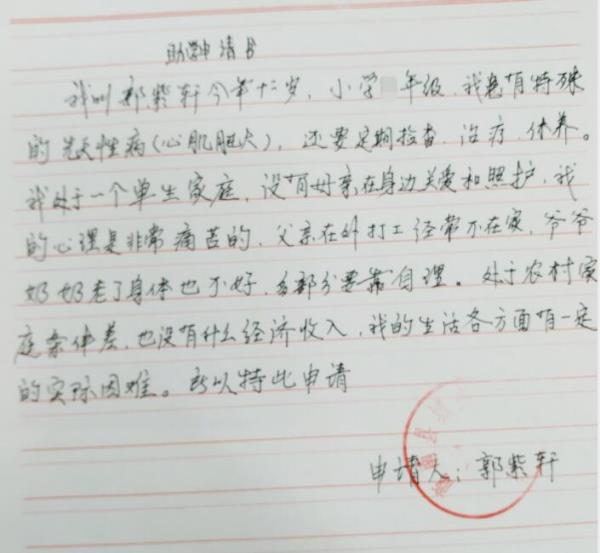 助学申请书
我叫郭紫轩今年十二岁，小学 年级，我患有特殊
的先天性病（心肌胆大），还要定期检查，治疗，休养。
我处于一个单生家庭，没有母亲在身边关爱和照护，我
的心理是非常痛苦的，父亲在外打工经常不在家，爷爷
奶奶老了身体也不好，多部分要靠自理。处于农村家
庭条件差，也没有什么经济收入，我的生活各方面有一定
的实际困难。所以特此申请
申请人：郭紫轩